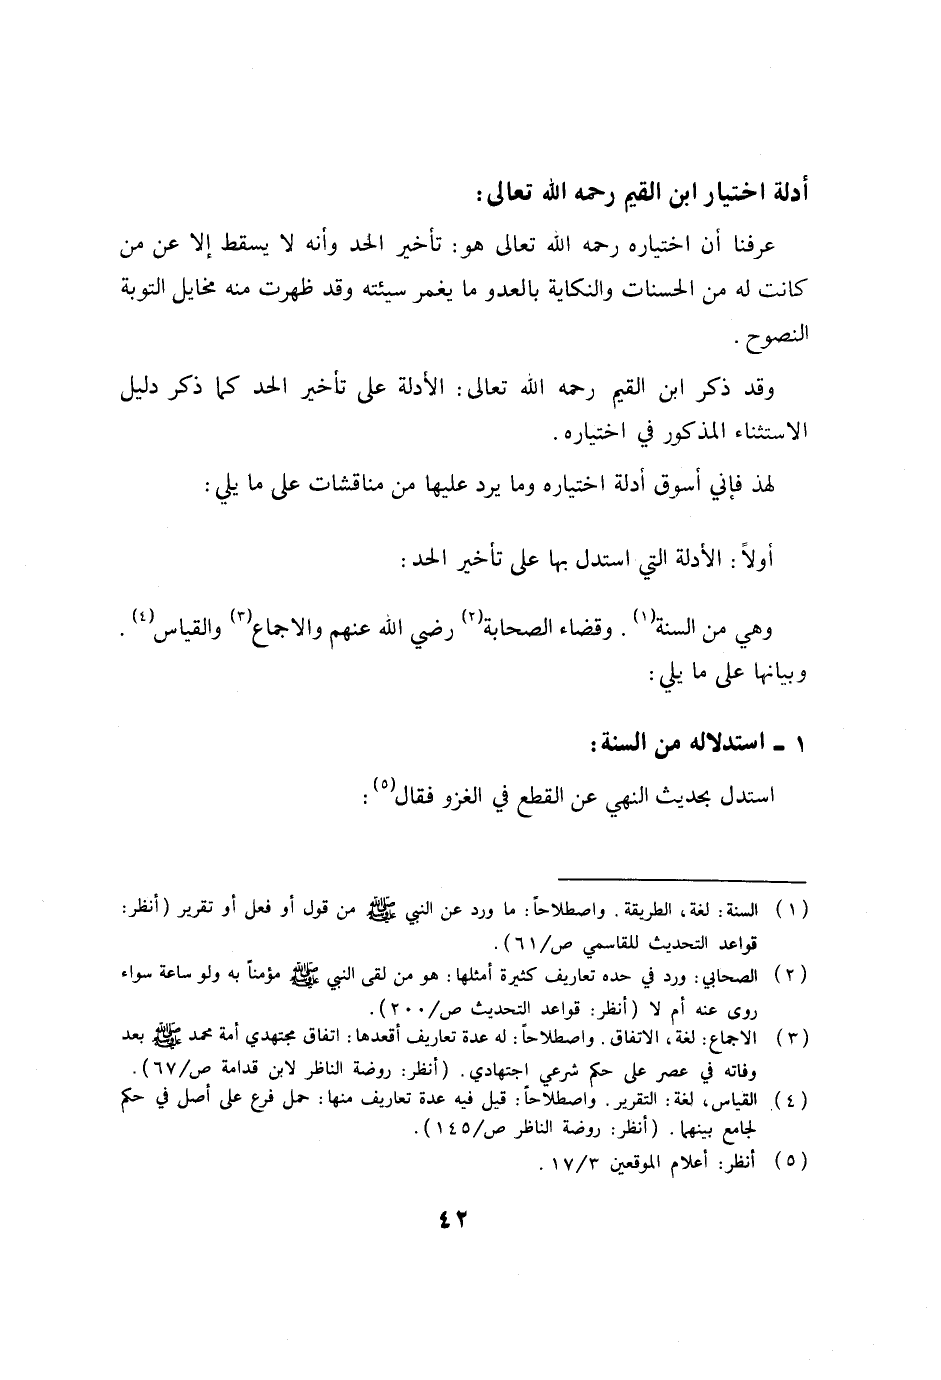 أدلة اختيار ابن القيم رحمه الله تعالى:
عرفنا أن اختياره رحمه الله تعالى هو: تأخير الحد وأنه لا يسقط إلا عن من
كانت له من الحسنات والنكاية بالعدو ما يغمر سيئته وقد ظهرت منه مخايل التوبة
النصوح .
وقد ذكر ابن القيم رحمه الله تعالى: الأدلة على تأخير الحد كما ذكر دليل
الاستثناء المذكور في اختياره.
لهذ فإني أسوق أدلة اختياره وما يرد عليها من مناقشات على ما يلي:
أولاً: الأدلة التي استدل بها على تأخير الحد:
وهي من السنة(١) . وقضاء الصحابة(٢) رضي الله عنهم والاجماع(٣) والقياس(٤) .
وبيانها على ما يلي:
١ ـ استدلاله من السنة:
استدل بحديث النهي عن القطع في الغزو فقال(٥):
(١) السنة: لغة، الطريقة . واصطلاحاً: ما ورد عن النبي ﷺ من قول أو فعل أو تقرير (أنظر:
قواعد التحديث للقاسمي ص/٦١).
(٢) الصحابي: ورد في حده تعاريف كثيرة أمثلها: هو من لقى النبي ﷺ مؤمناً به ولو ساعة سواء
روى عنه أم لا (أنظر: قواعد التحديث ص/٢٠٠).
(٣) الاجماع: لغة، الاتفاق . واصطلاحاً: له عدة تعاريف أقعدها: اتفاق مجتهدي أمة محمد ﷺ بعد
وفاته في عصر على حكم شرعي اجتهادي. (أنظر: روضة الناظر لابن قدامة ص/٦٧).
(٤) القياس، لغة: التقرير. واصطلاحاً: قيل فيه عدة تعاريف منها: حمل فرع على أصل في حكم
لجامع بينهما. (أنظر: روضة الناظر ص/١٤٥).
(٥) أنظر: أعلام الموقعين ١٧/٣ .
٤٢